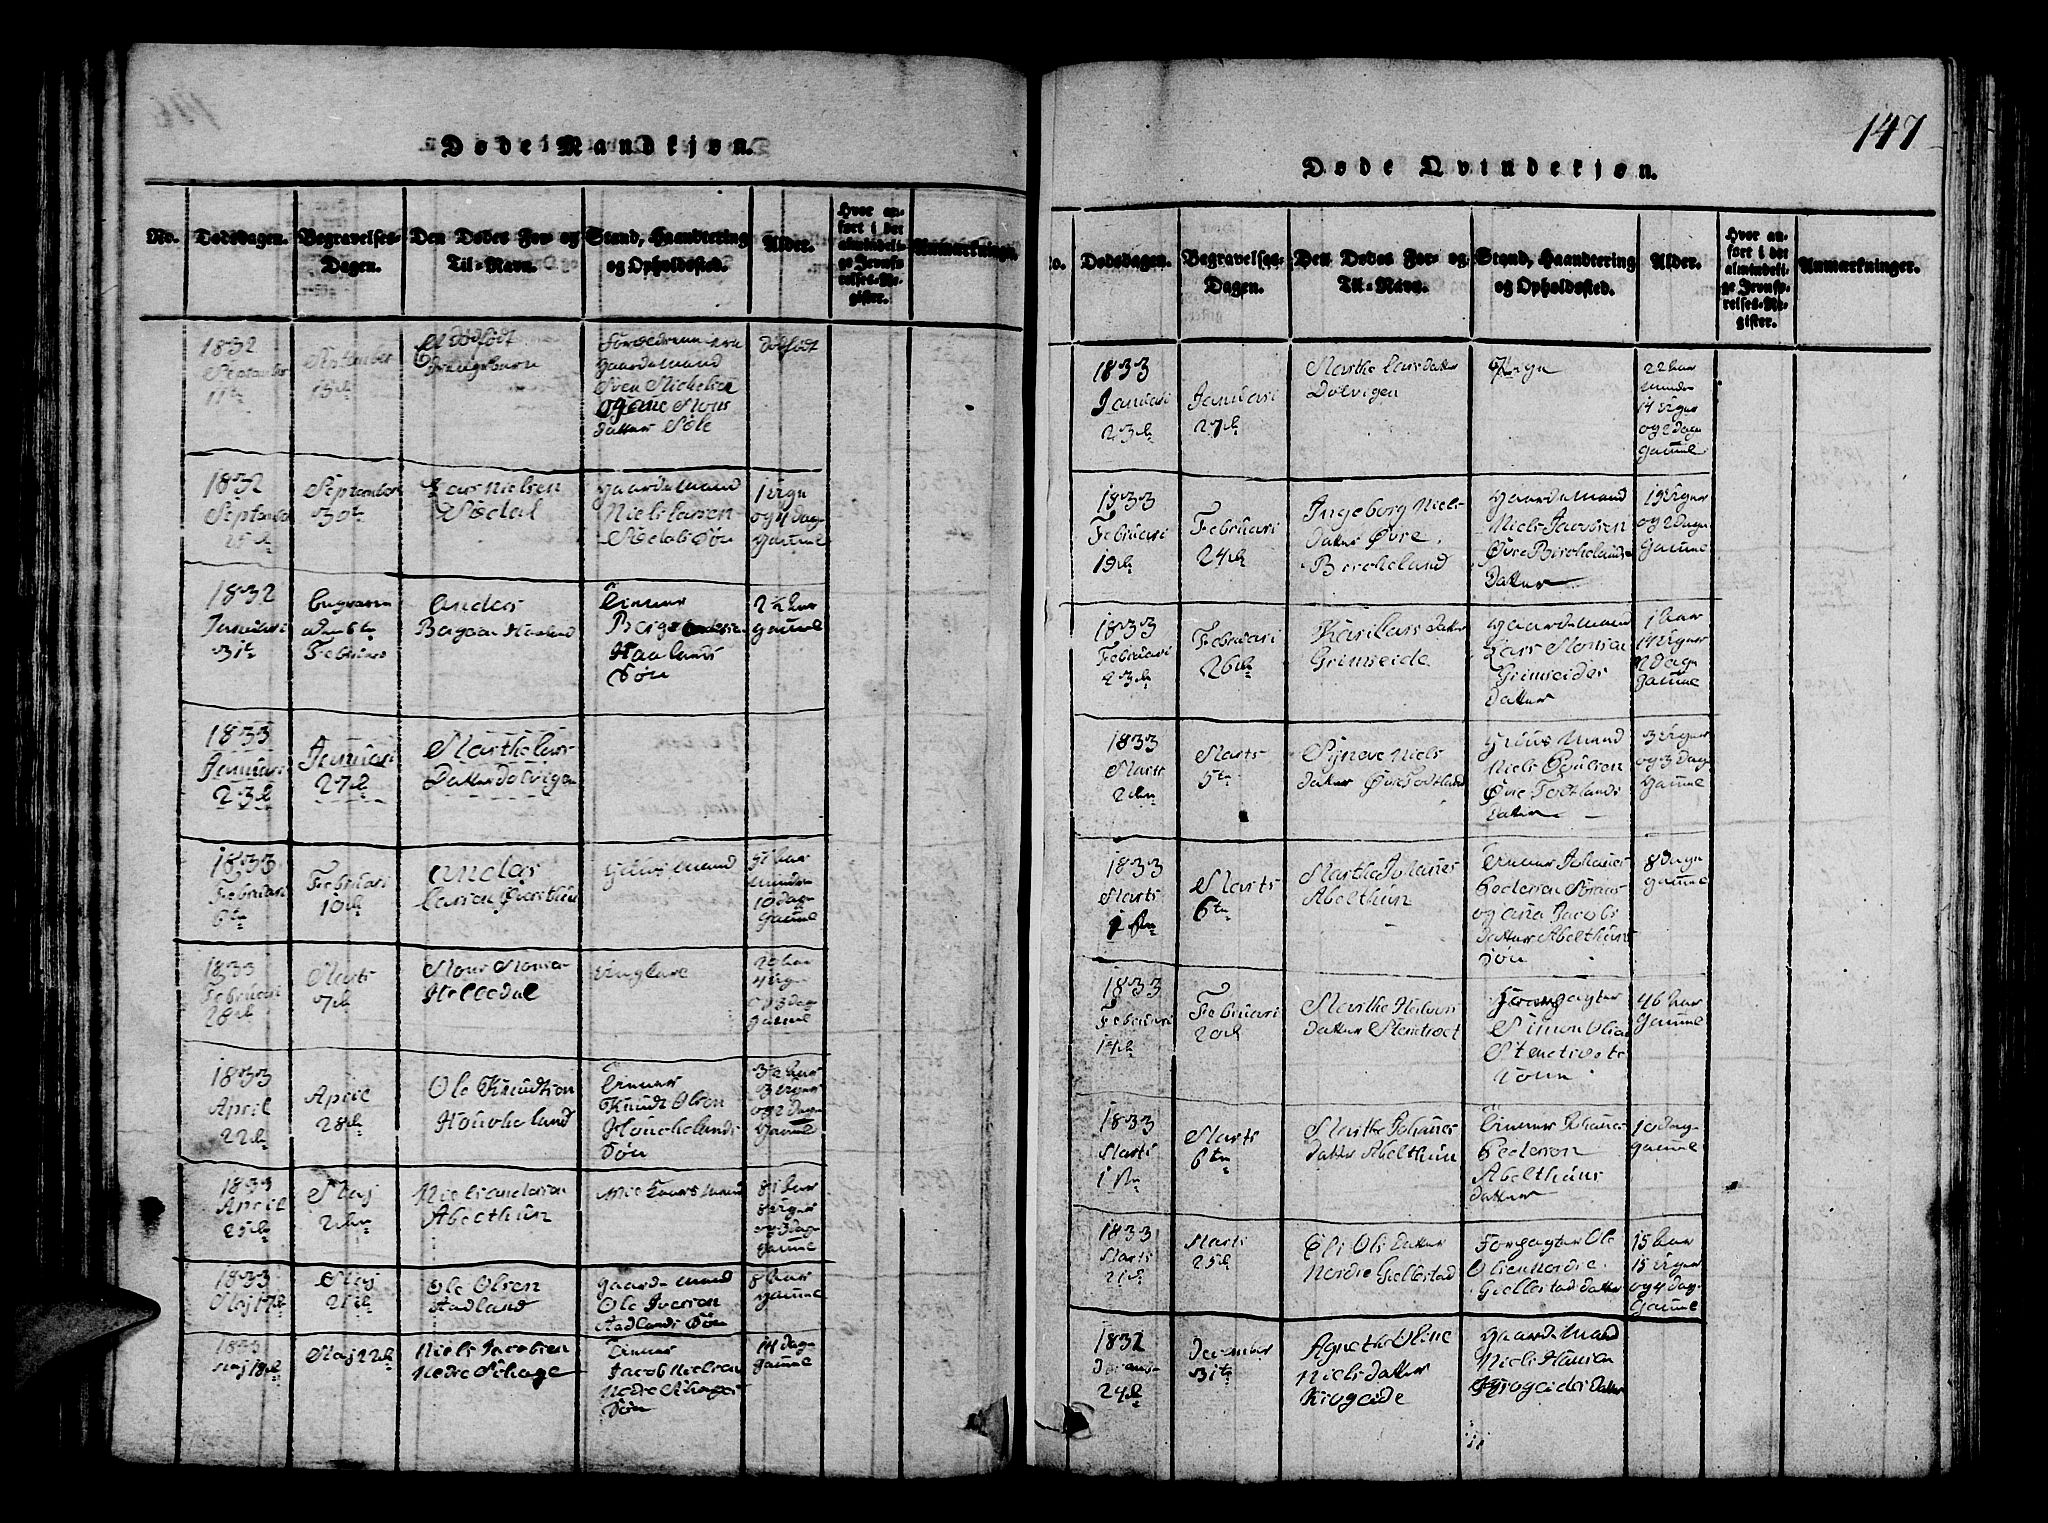 Døde Mandkjøn.
No.
Dødsdagen.
Begravelses-
Dagen.
Den Dødes For- og
Til-Navn.
Stand, Haandtering
og Opholdssted.
Alder.
Hvor an-
ført i det
almindeli-
ge Jevnfø-
relses-Re-
gister.
Anmærkninger.
1832
September
11te
September
13de
Et dødfødt
Drengebarn
Gaardemand
Sven Michelsen
datter Sole
dødfødt
1832
September
25de
September
30te
Lars Nielsen
Sødal
Gaardemand
Niels Larsen
Søn
1 Uge
og 4 dage
gammel
1832
Januari
31te
begraven
Februari
Anders
Haaland
Haalands
Søn
2½ Aar
gammel
1833
Januari
23de
Januari
27de
Marthe Lars
Datter Dolvigen
1833
Februari
6te
Februari
10de
Anders
Larsen
Huusmand
10 dage
gammel
1833
Februari
28de
Marts
7de
Mons Monsen
Helledal
Ungkarl
gammel
1833
April
22de
April
28de
Ole Knudtsen
Knudt Olsen
Søn
3 Uger
og 2 dage
gammel
1833
April
25de
Maj
2den
Niels Andersen
Abelthun
8 Uger
og 3 dage
gammel
1833
Maj 17de
Maj
21de
Ole Olsen
Aadland
Gaardemand
Ole Iversen
Aadlands Søn
8 Aar
gammel
1833
Maj 18de
Maj 22de
Niels Jacobsen
Nedre Schage
Jacob Nielsen
Nedre Schages
Søn
14 dage
gammel
147
Døde Qvindekjøn.
No.
Dødsdagen.
Begravelses-
Dagen.
Den Dødes For- og
Til-Navn.
Stand, Haandtering
og Opholdssted.
Alder.
Hvor an-
ført i det
almindeli-
ge Jevnfø-
relses-Re-
gister.
Anmærkninger.
1833
Januari
23de
Januari
27de
Marthe Lars Datter
Dolvigen
Pige
22 Aar
14 Uger
og 2 dage
gammel
1833
Februari
19de
Februari
24de
Ingeborg Niels-
Datter Øvre
Birkeland
Gaardemand
Niels Jacobsen
Øvre Birkelands
Datter
19 Uger
og 2 dage
gammel
1833
Februari
23de
Februari
26de
Kari Lars Datter
Grimseide
Gaardemand
Lars Monsen
Grimseides
Datter
1 Aar
14 Uger
2 dage
gammel
1833
Marts
2den
Marts
5te
Synove Niels
datter Øvre Todtland
Huusmand
Niels Poulsen
Øvre Todtlands
Datter
3 Uger
og 3 dage
gammel
1833
Marts
1ste
Marts
6te
Marthe Johannes
Abelthun
Johannes
Pedersen
og Jacobs
Datter Abelthuns
Søn
8 dage
gammel
1833
Februari
14de
Februari
20de
Marthe
Datter
Forpagter
Simon
46 Aar
gammel
1833
Marts
1ste
Marts
6te
Marthe Johannes
Datter Abelthun
Johannes
Pedersen
Abelthuns
Datter
10 dage
gammel
1833
Marts
21de
Marts
25de
Eli Ols Datter
Nordre Gjellestad
Forpagter Ole
Olsen Nordre
Gjellestad datter
15 Aar
15 Uger
og 4 dage
gammel
1832
December
24de
December
31te
Agnethe Oline
Niels datter
Krogeide
Gaardemand
Niels Hansen
Krogeides datter